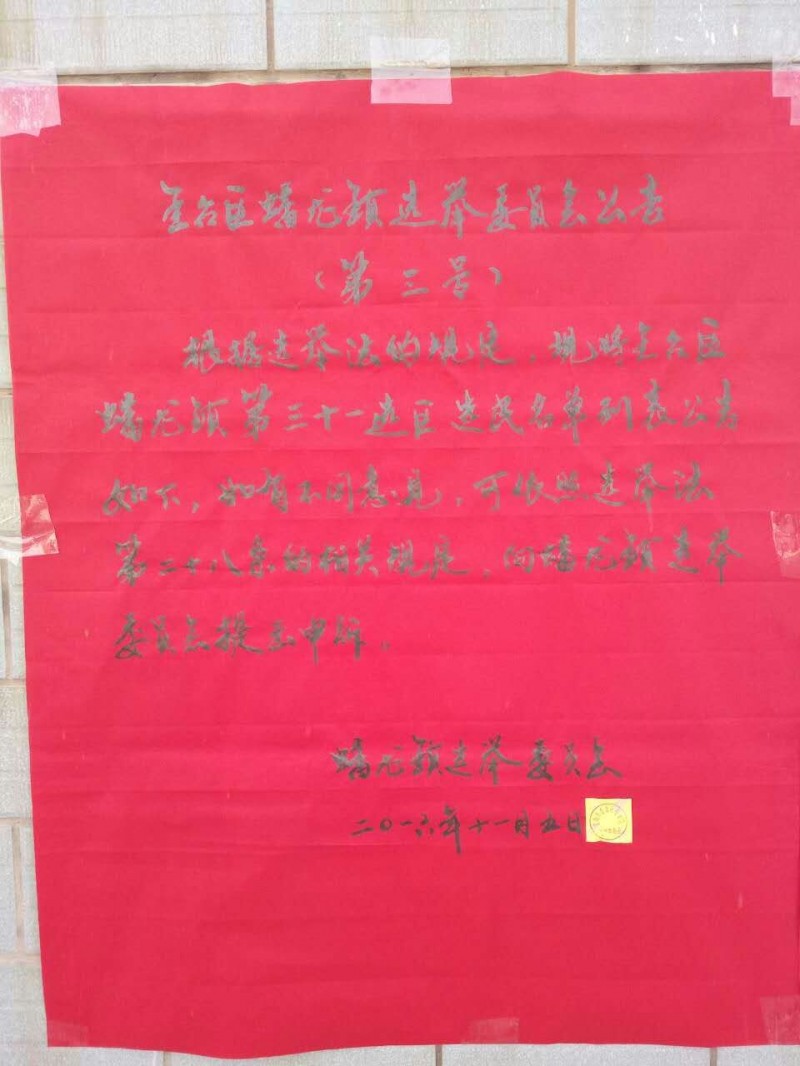 金台区蟠龙镇选举委员会公告
（第三号）
根据选举法的规定，现将金台区
蟠龙镇第三十一选区选民名单列表公告
如下，如有不同意见，可依照选举法
第二十八条的相关规定，向蟠龙镇选举
委员会提出申诉。
蟠龙镇选举委员会
二〇一六年十一月五日